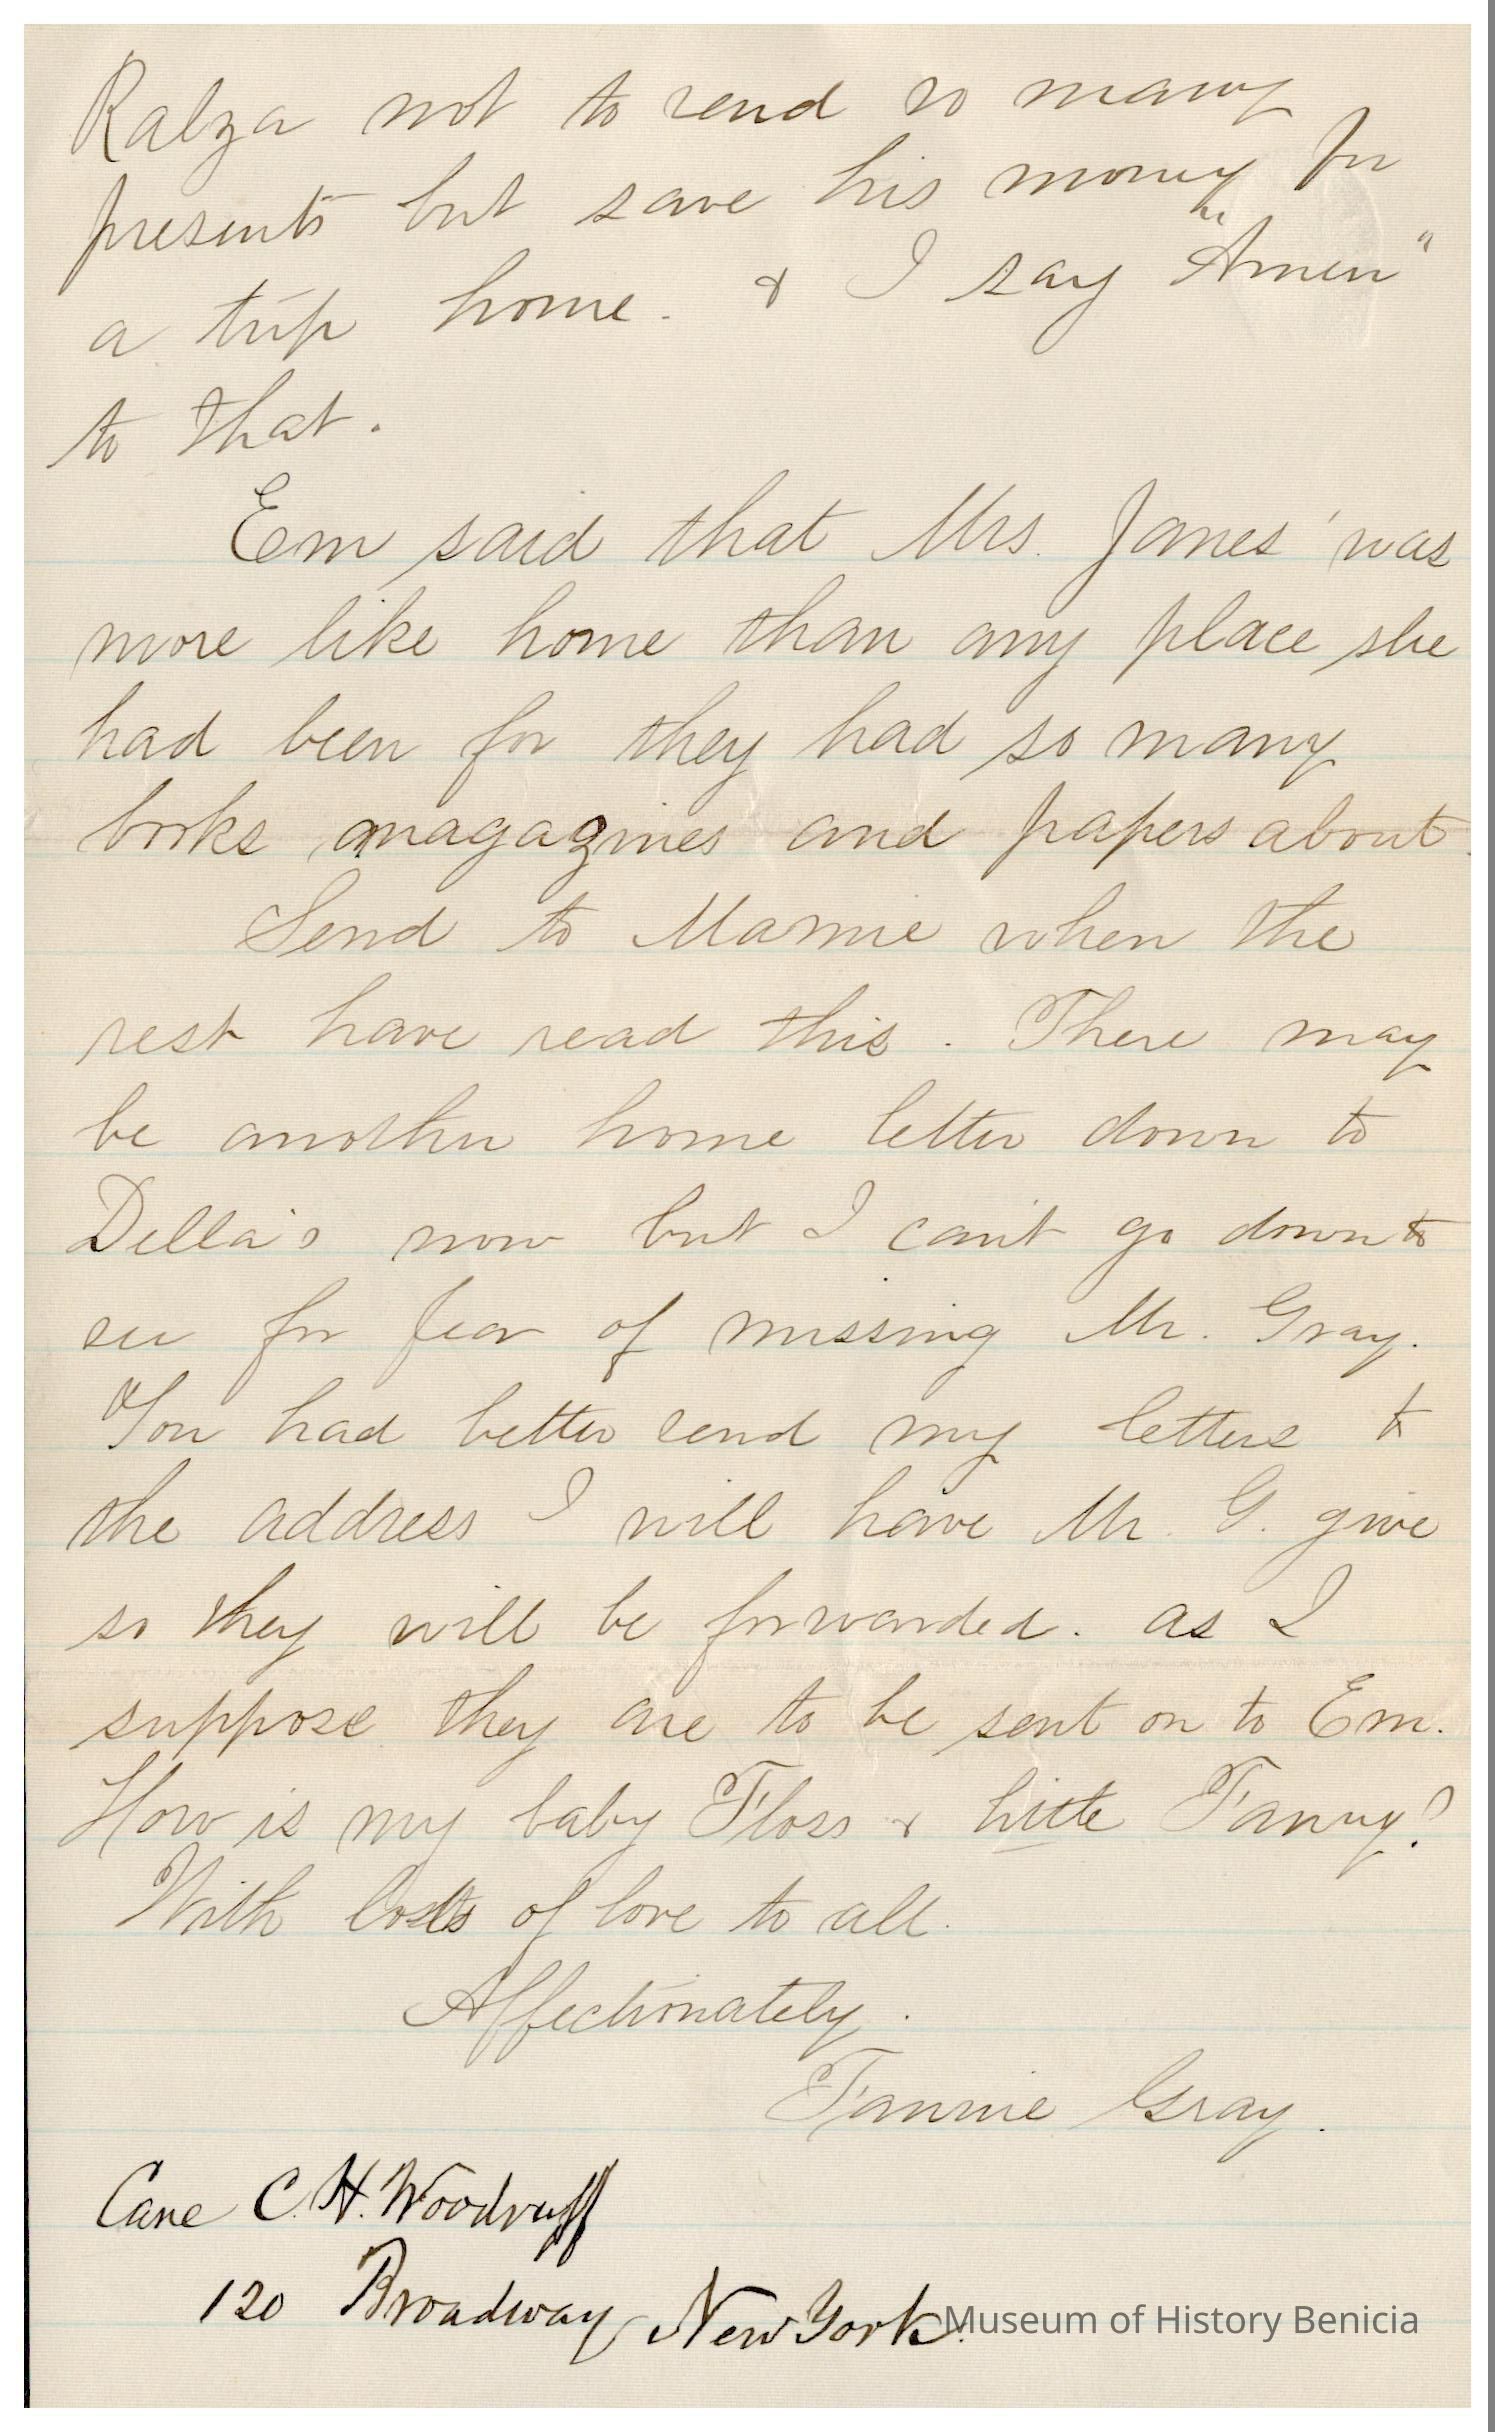 Ralza not to send so many
presents but save his money for
a trip home. & I say "Amen"
to that.
Em said that Mrs. Janes' was
more like home than any place she
had been for they had so many
books magazines and papers about.
Send to Mamie when the
rest have read this. There may
be another home letter down to
Della's now but I can't go down to
see for fear of missing Mr. Gray.
You had better send my letters to
the address I will have Mr. G. give
so they will be forwarded. as I
suppose they are to be sent on to Em.
How is my baby Floss & little Fanny?
With lots of love to all.
Affectionately.
Fannie Gray.
Care C. H. Woodruff
120 Broadway, New York.
Museum of History Benicia